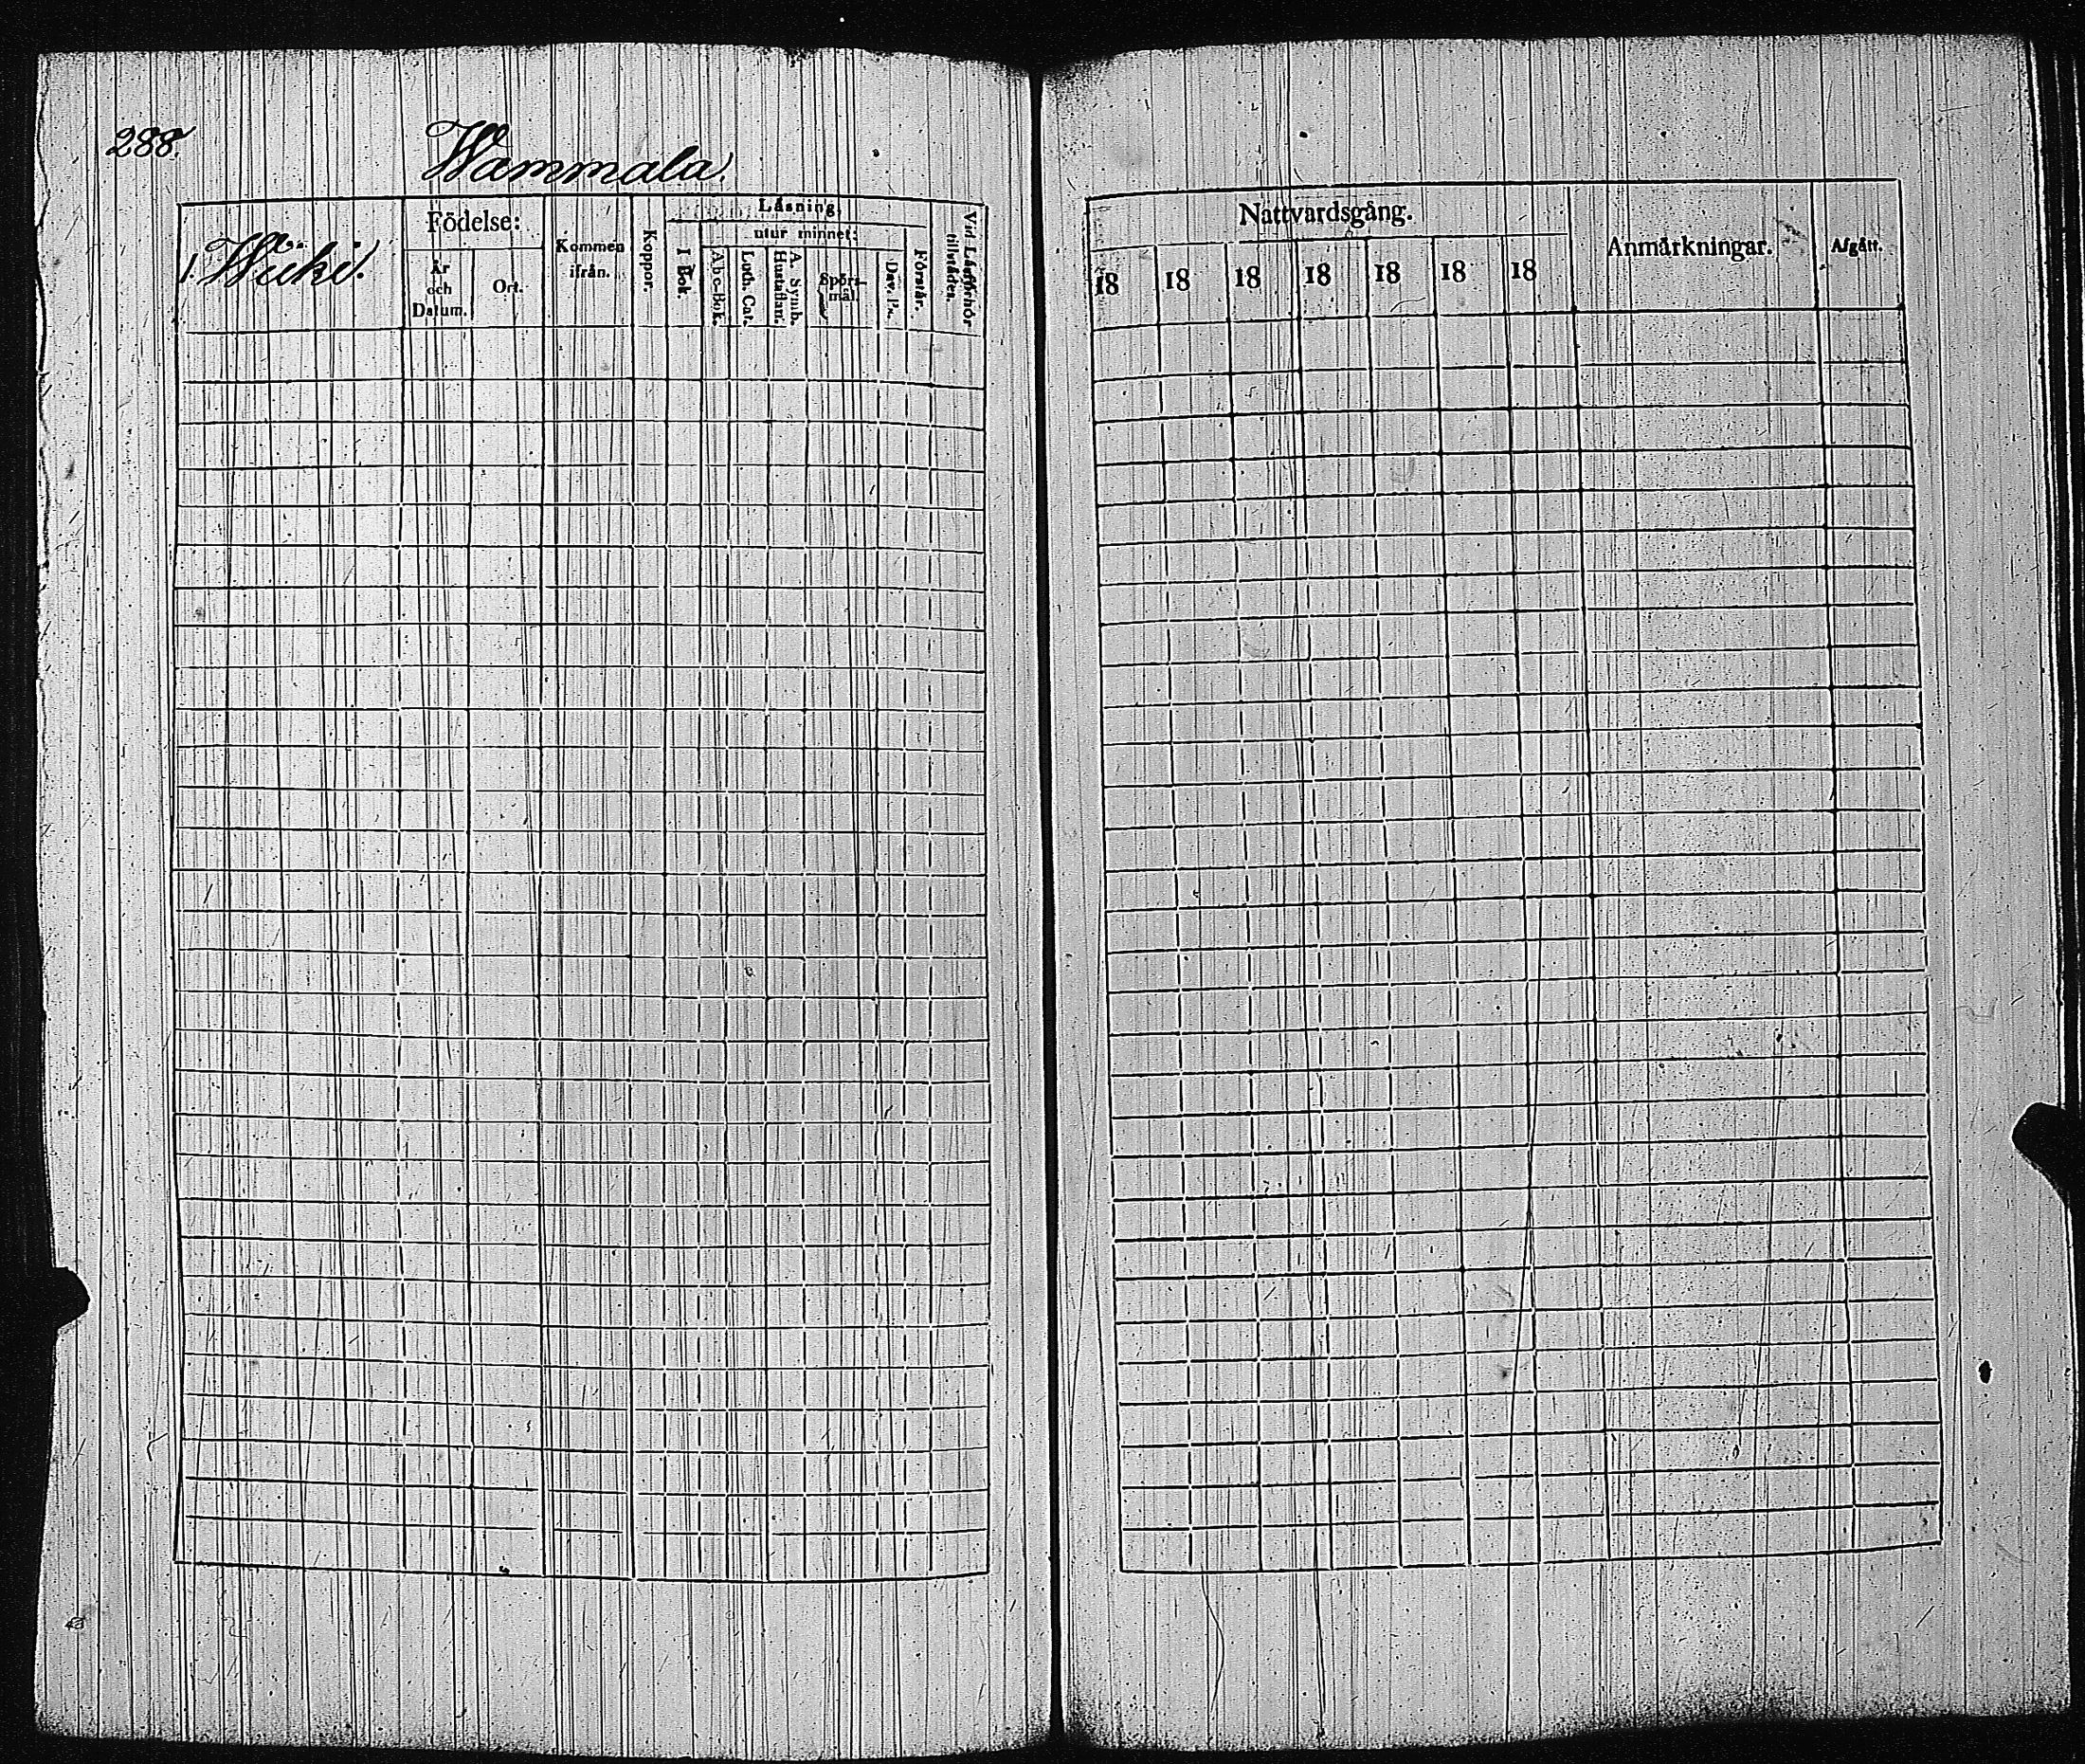 288.
Wammala.
1. Wuki.
Födelse:
År
och
Datum.
Ort.
Kommen
ifrån.
Koppor.
Läsning.
I Bok.
utur minnet:
Abc-Bok.
Luth. Cat.
A. Symb.
Hustaflan.
Spörs-
mål.
Dav. Ps.
Förstår.
Vid Läsförhör
tillstädes.
Nattvardsgång.
18 18 18 18 18 18 18
Anmärkningar.
Afgått.